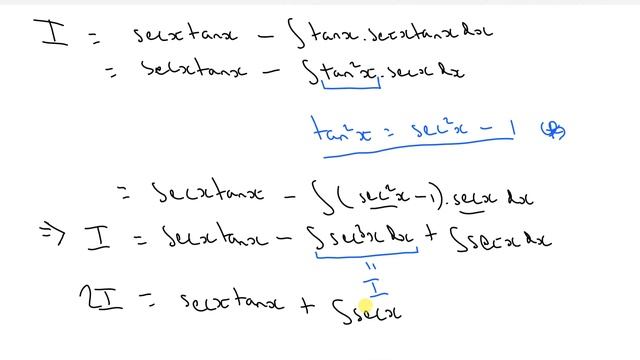 I = secxtanx - ∫tanx.secxtanxdx
= secxtanx - ∫tan²x.secxdx
tan²x = sec²x - 1 (*)
= secxtanx - ∫(sec²x-1).secxdx
⇒ I = secxtanx - ∫sec³xdx + ∫secxdx
"
I
2I = secxtanx + ∫secx